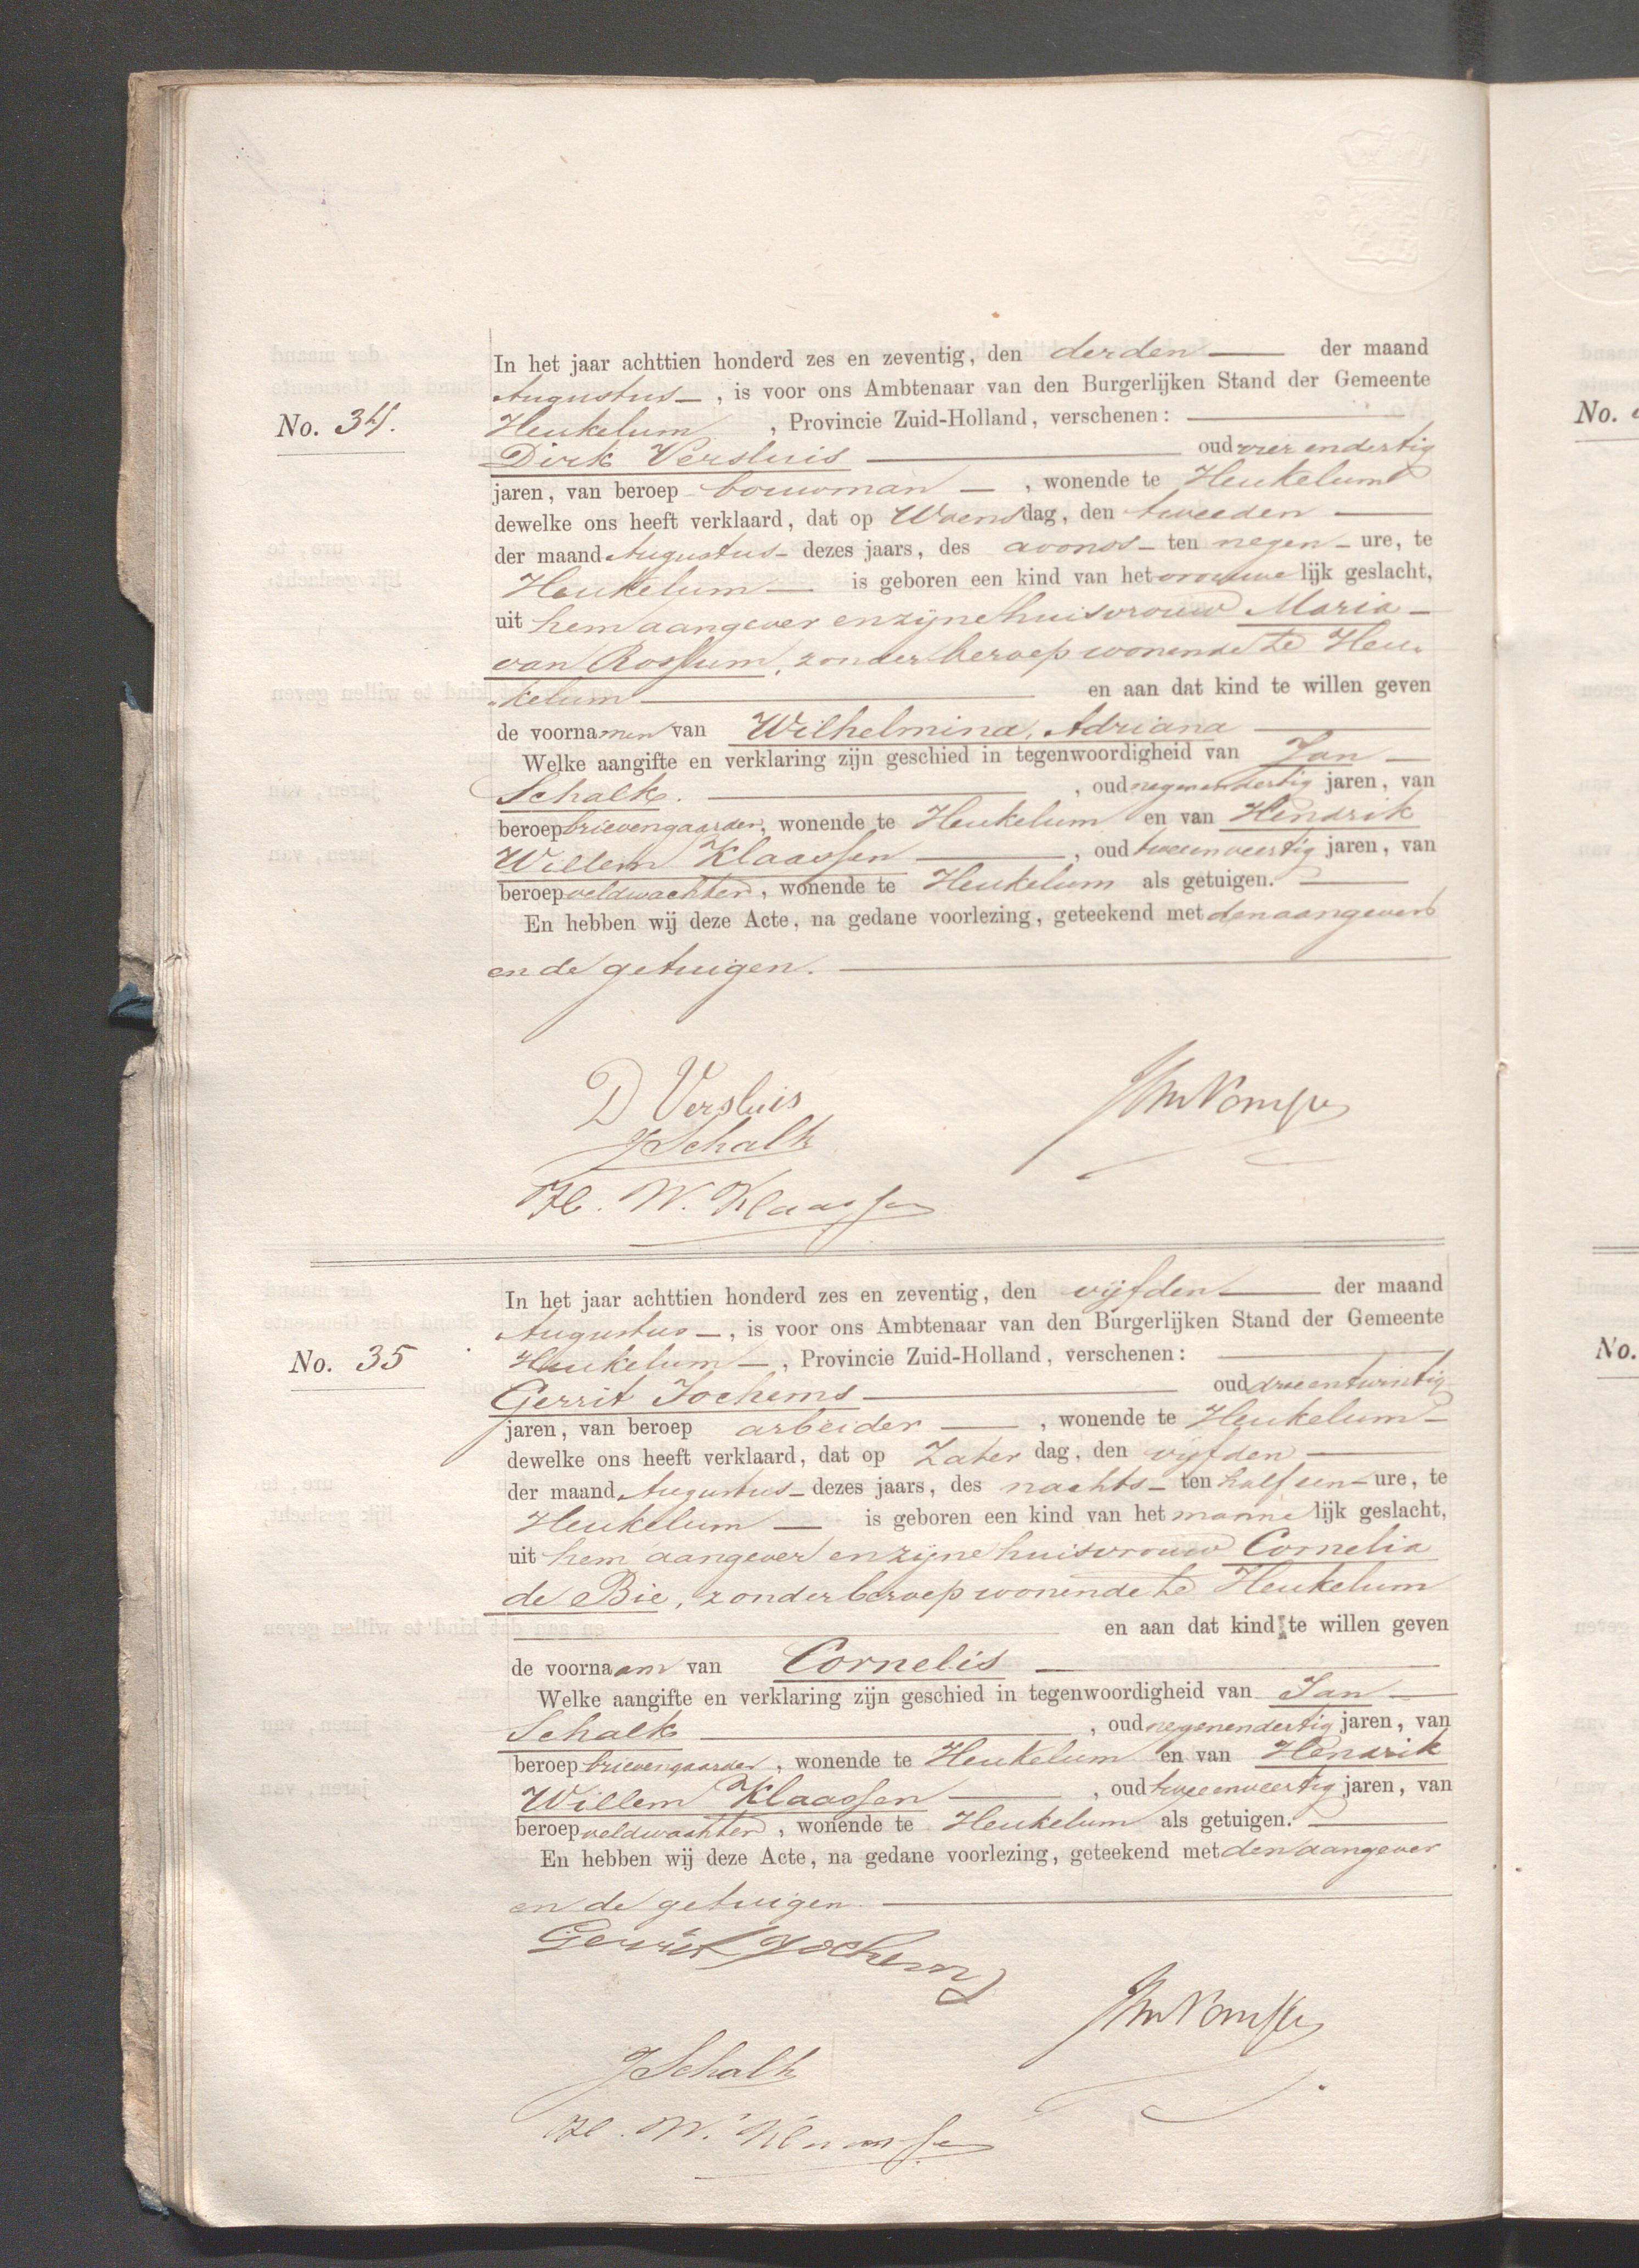 No. 34.
In het jaar achttien honderd zes en zeventig, den derden der maand
Augustus, is voor ons Ambtenaar van den Burgerlijken Stand der Gemeente
Heukelum, Provincie Zuid-Holland, verschenen:
Dirk Versluis oud vier en dertig
jaren, van beroep bouwman, wonende te Heukelum
dewelke ons heeft verklaard, dat op Woensdag, den tweeden
der maand Augustus dezes jaars, des avonds ten negen ure, te
Heukelum is geboren een kind van het vrouwelijk geslacht,
uit hem aangever en zijne huisvrouw Maria
van Rossum, zonder beroep wonende te Heu-
kelum en aan dat kind te willen geven
de voornamen van Wilhelmina, Adriana
Welke aangifte en verklaring zijn geschied in tegenwoordigheid van Jan
Schalk. , oud negenendertig jaren, van
beroep brievengaarder, wonende te Heukelum en van Hendrik
Willem Klaassen, oud tweeenveertig jaren, van
beroep veldwachter, wonende te Heukelum als getuigen.
En hebben wij deze Acte, na gedane voorlezing, geteekend met den aangever
en de getuigen.
D Versluis
J Schalk
H. W. Klaassen
No. 35
In het jaar achttien honderd zes en zeventig, den vijfden der maand
Augustus, is voor ons Ambtenaar van den Burgerlijken Stand der Gemeente
Heukelum, Provincie Zuid-Holland, verschenen:
Gerrit Jochems oud drieentwintig
jaren, van beroep arbeider, wonende te Heukelum
dewelke ons heeft verklaard, dat op Zaterdag, den vijfden
der maand Augustus dezes jaars, des nachts ten half een ure, te
Heukelum is geboren een kind van het mannelijk geslacht,
uit hem aangever en zijne huisvrouw Cornelia
de Bie, zonder beroep wonende te Heukelum
en aan dat kind te willen geven
de voornaam van Cornelis
Welke aangifte en verklaring zijn geschied in tegenwoordigheid van Jan
Schalk, oud negenendertig jaren, van
beroep brievengaarder, wonende te Heukelum en van Hendrik
Willem Klaassen, oud tweeenveertig jaren, van
beroep veldwachter, wonende te Heukelum als getuigen.
En hebben wij deze Acte, na gedane voorlezing, geteekend met den aangever
en de getuigen.
Gerrit Jochems
J Schalk
H. W. Klaassen
No.
No.